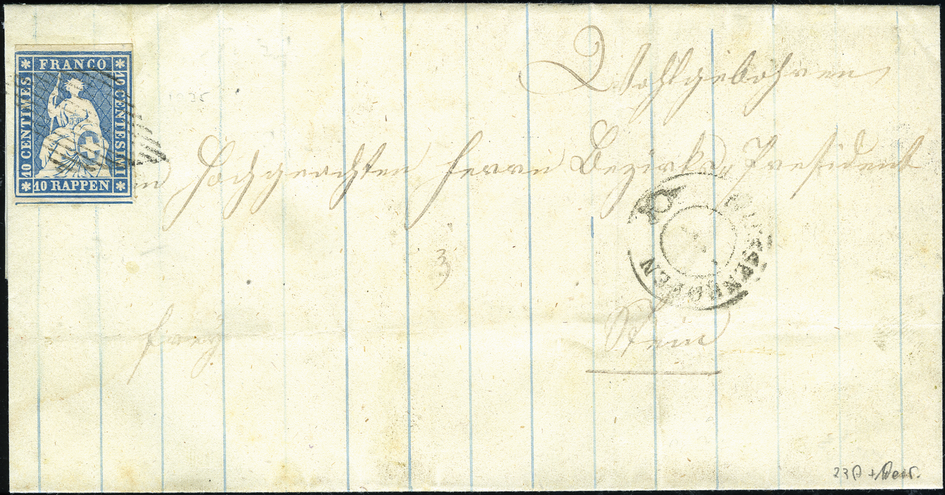 FRANCO
10 CENTIMES
10 CENTESIMI
10 RAPPEN
Wohlgebohren
Hochgeachten Herrn Bezirks President
DIESSENHOFEN
3
frey
Stein